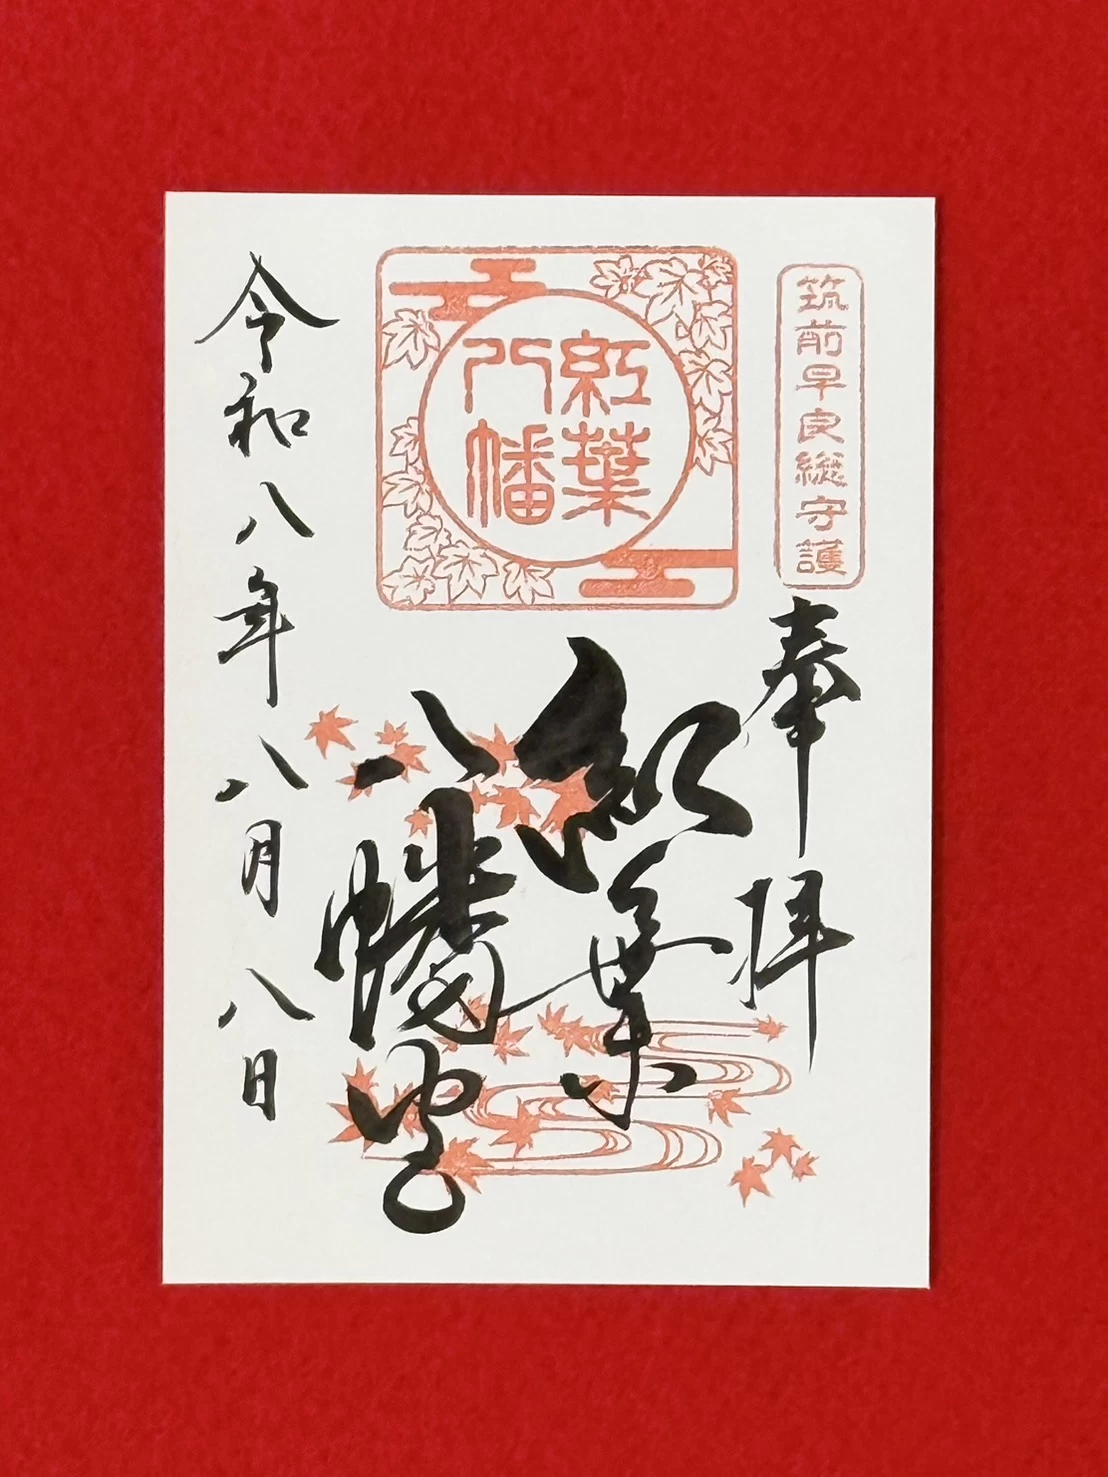 筑前早良総守護
奉拝
紅葉
八幡
紅葉
八幡宮
令和八年八月八日